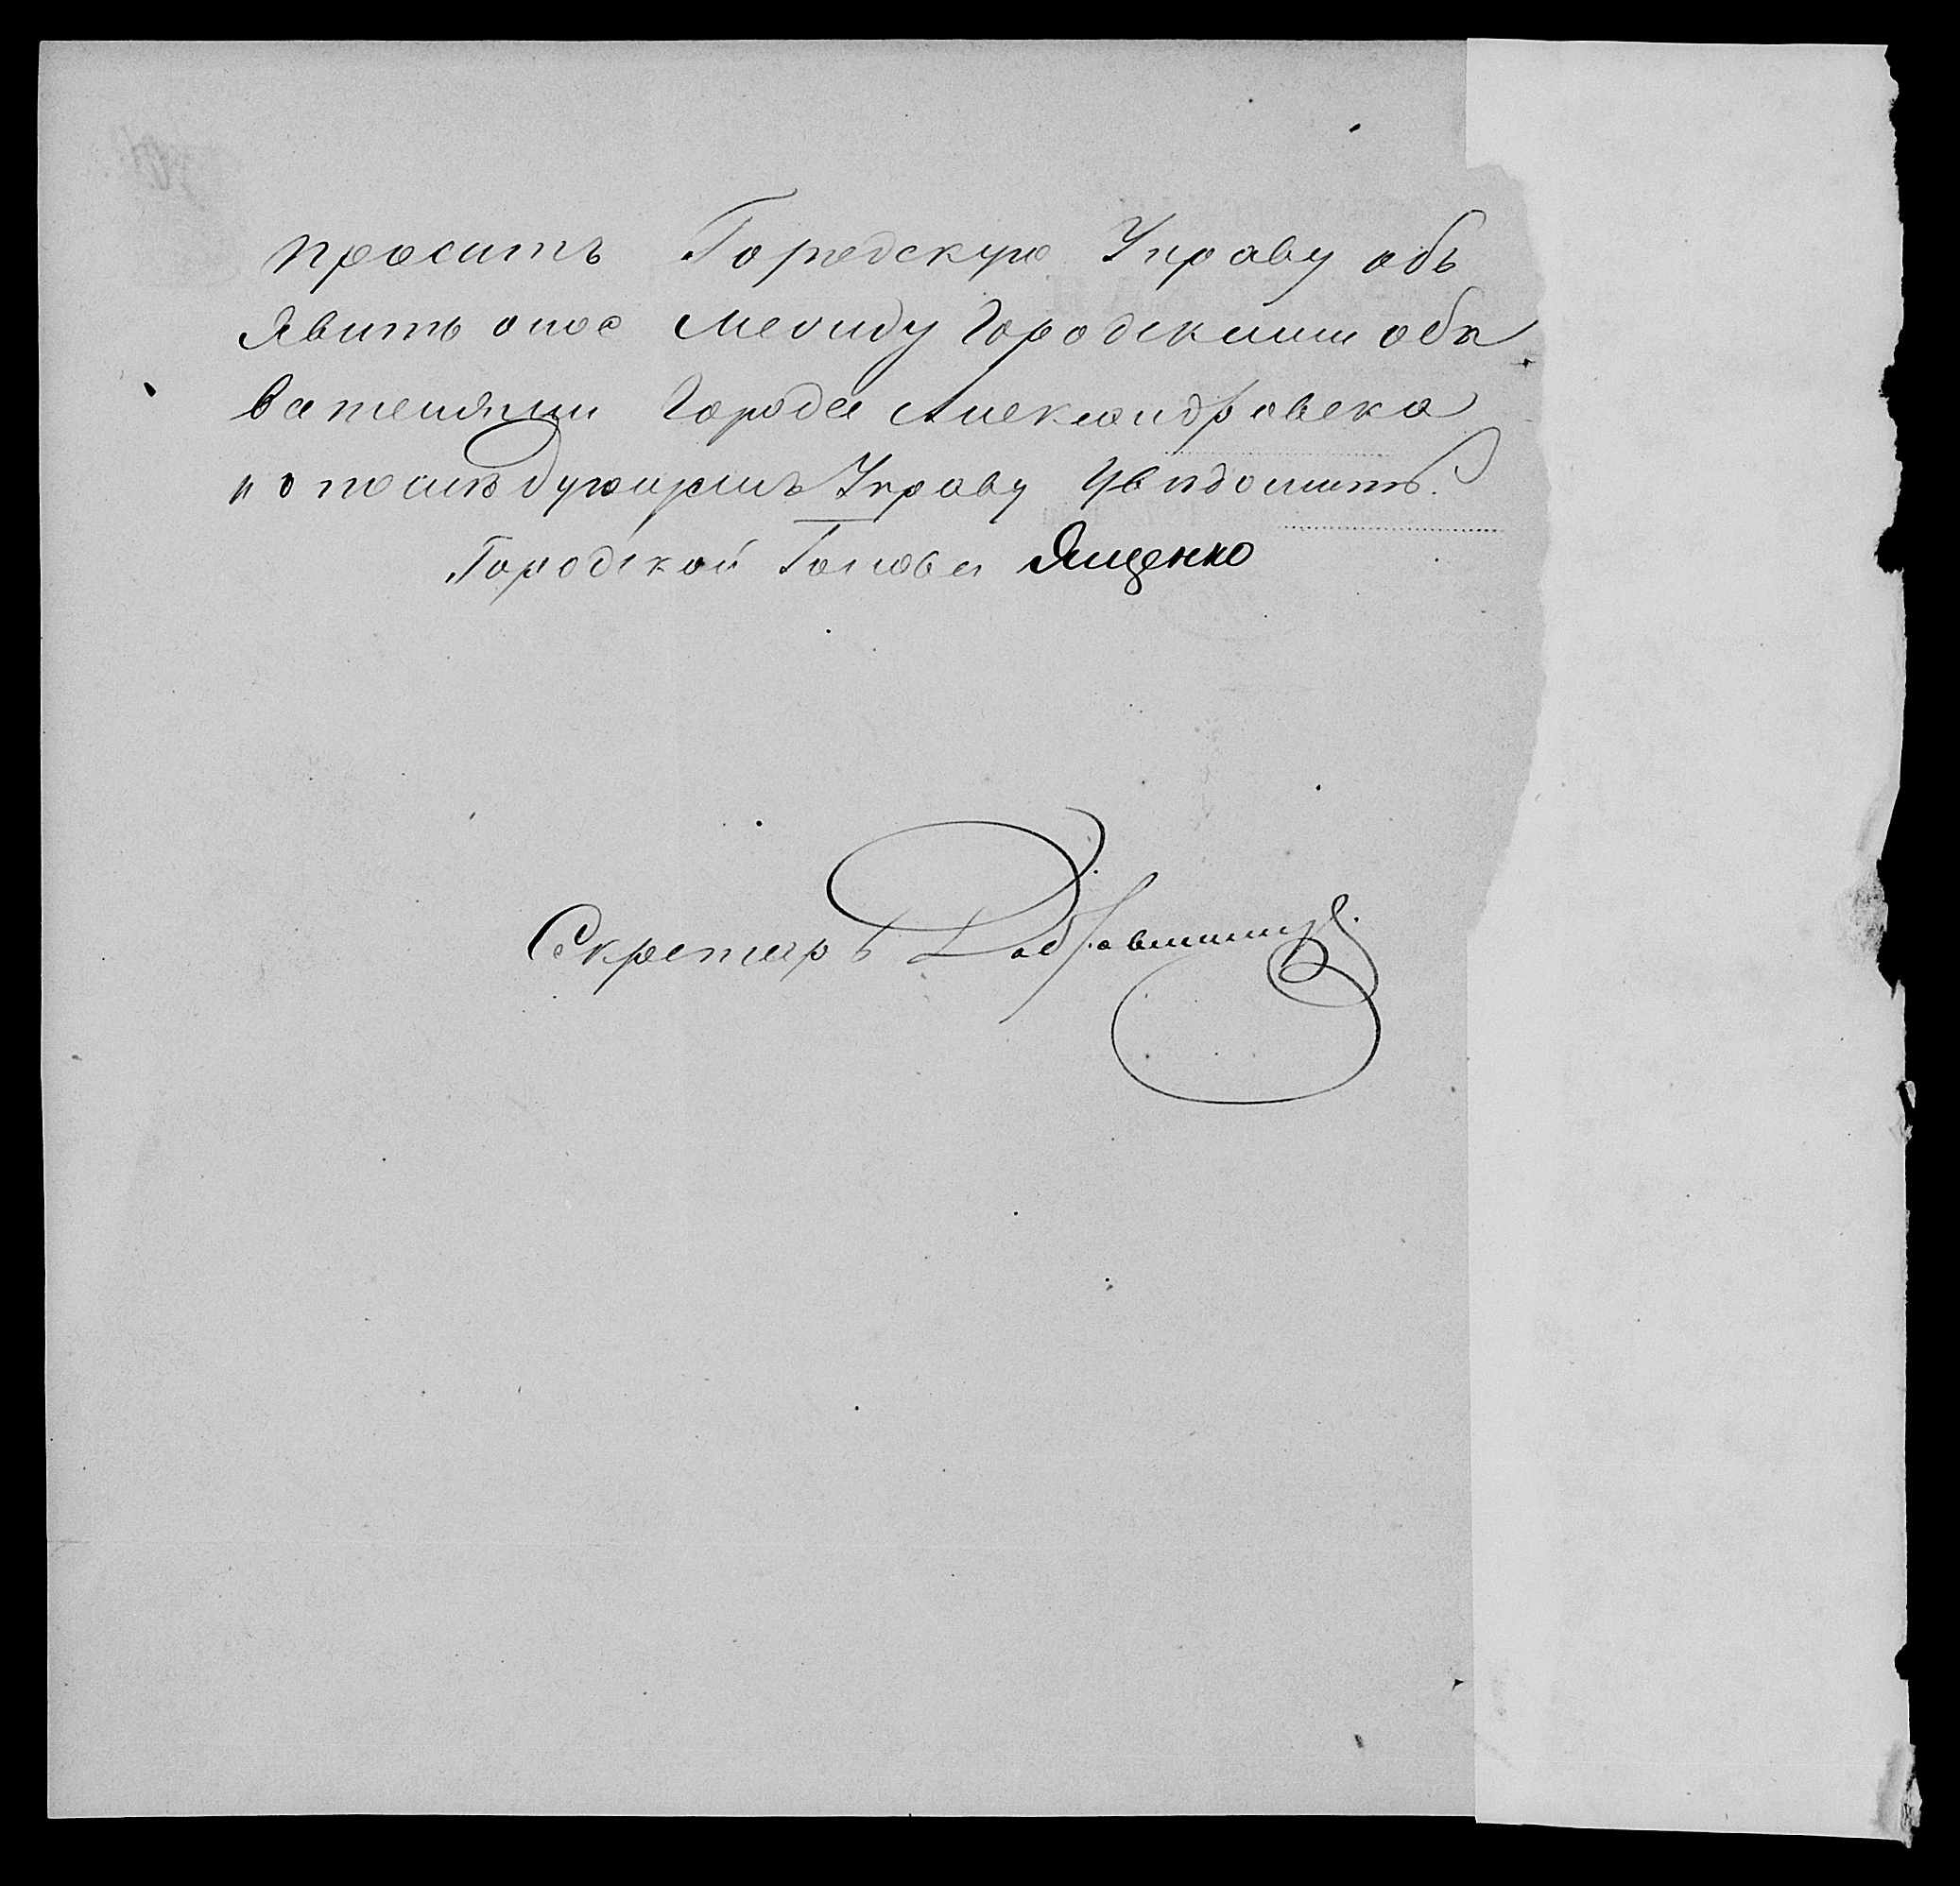 просить Городскую Управу объ
явить оное Между Городскими обы
вателями Города Александровска
и о послѣдующемъ Управу Увѣдомить.
Городской Голова Ященко
Секретарь